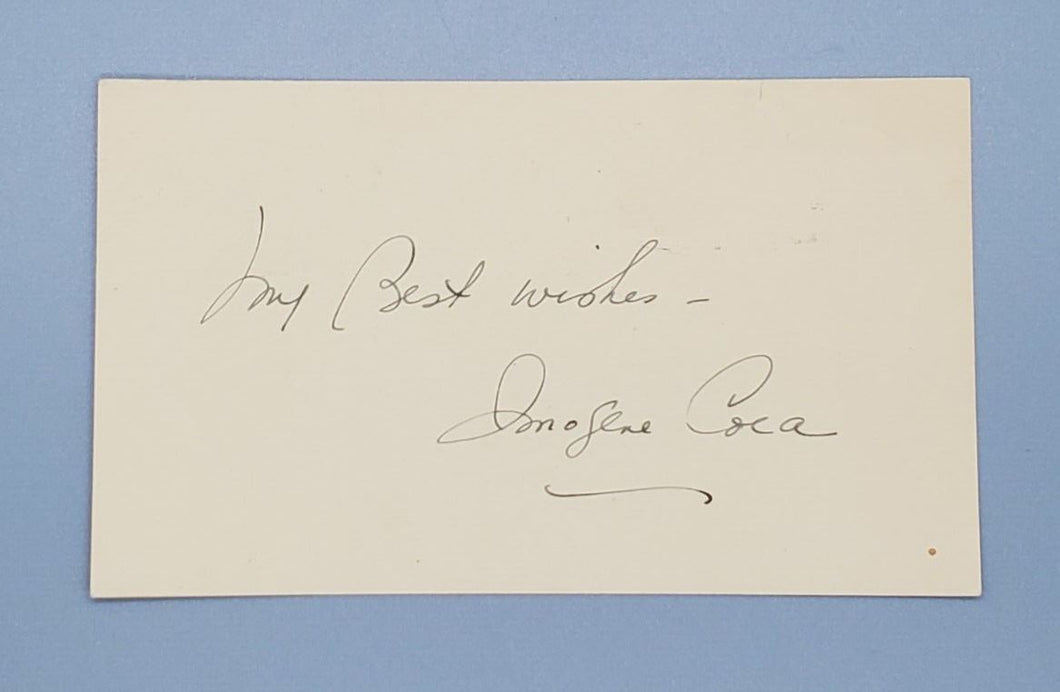 My Best wishes -
Imogene Coca